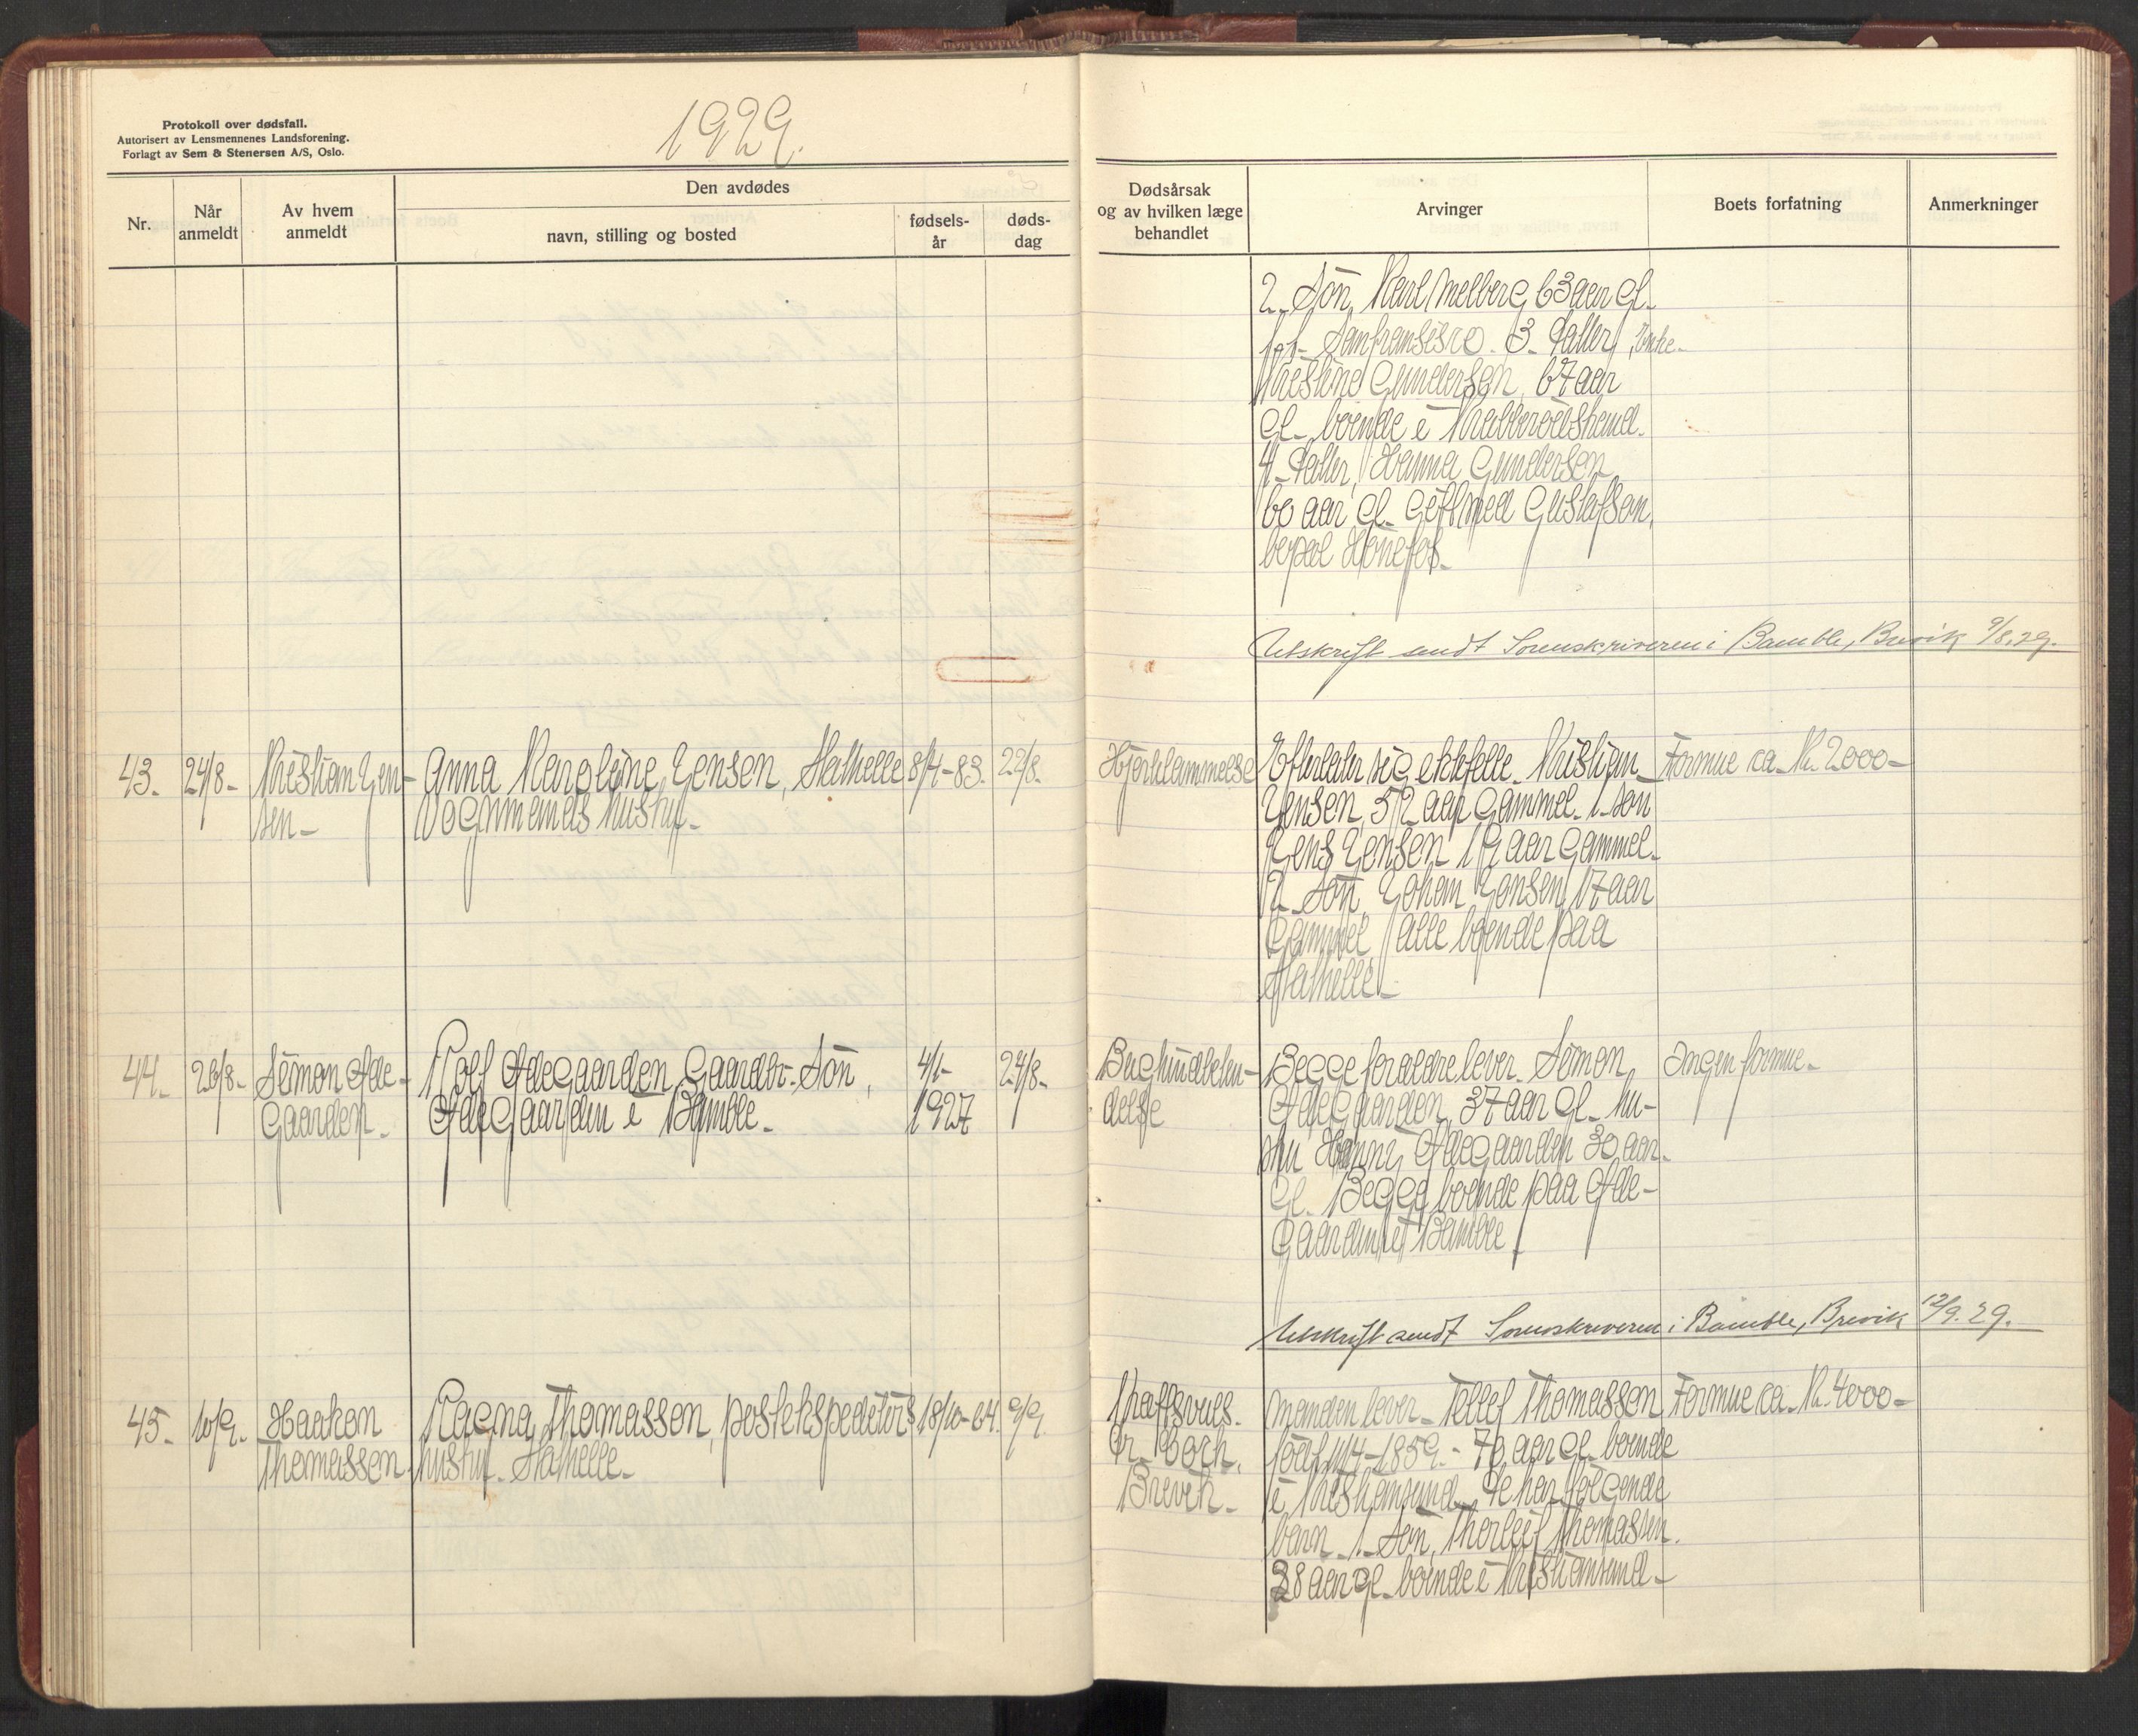 Protokoll over dødsfall.
Autorisert av Lensmennenes Landsforening.
Forlagt av Sem & Stenersen A/S, Oslo.
1929.
Nr.
Når anmeldt
Av hvem anmeldt
Den avdødes
navn, stilling og bosted
fødsels-
år
døds-
dag
Dødsårsak
og av hvilken læge
behandlet
Arvinger
Boets forfatning
Anmerkninger
2. Søn, Karl Melberg 63 aar gl.
Sanfransisco. 3. Datter, Enke.
Kristine Gundersen, 67 aar
gl. boende i Krabberødstrand.
4. Datter, Hanna Gundersen
60 aar gl. gift med Gustafsen,
bopæl Hønefos.
Utskrift sendt Sorenskriveren i Bamble, Brevik 9/8.29.
43.
24/8-
Kristian Jen-
sen-
Anna Karoline Jensen, Stathelle
Vognmands hustru.
8/4-83.
22/8.
Hjertelammelse
Efterlater sig ektefelle. Kristian
Jensen, 52 aar gammel. 1. søn
Jens Jensen 19 aar gammel.
2. Søn, Johan Jensen, 17 aar
gammel, alle boende paa
Stathelle.
Formue ca. Kr. 2000-
44.
26/8-
Simon Øde-
gaarden.
Rolf Ødegaarden, Gaardbr. Søn,
Ødegaarden i Bamble.
4/1-
1927
24/8-
Bughindbeten-
delse
Begge forældre lever. Simon
Ødegaarden, 37 aar gl. hu-
stru Hanny Ødegaarden 30 aar.
gl. Begge boende paa Øde-
gaarden i Bamble.
Ingen formue.
Utskrift sendt Sorenskriveren i Bamble, Brevik 12/9.29.
45.
10/9.
Haakon
Thomassen.
Ragna Thomassen, postekspeditørs
hustru. Stathelle.
18/10-64.
9/9.
Kraftsvils.
Dr. Borch,
Brevik.
Manden lever. Tellef Thomassen
født 11/4-1859.- 70 aar gl. boende
i Kristiansund. De har følgende
barn. 1. Søn, Thorleif Thomassen.
38 aar gl. boende i Kristiansund.
Formue ca. Kr. 4000-